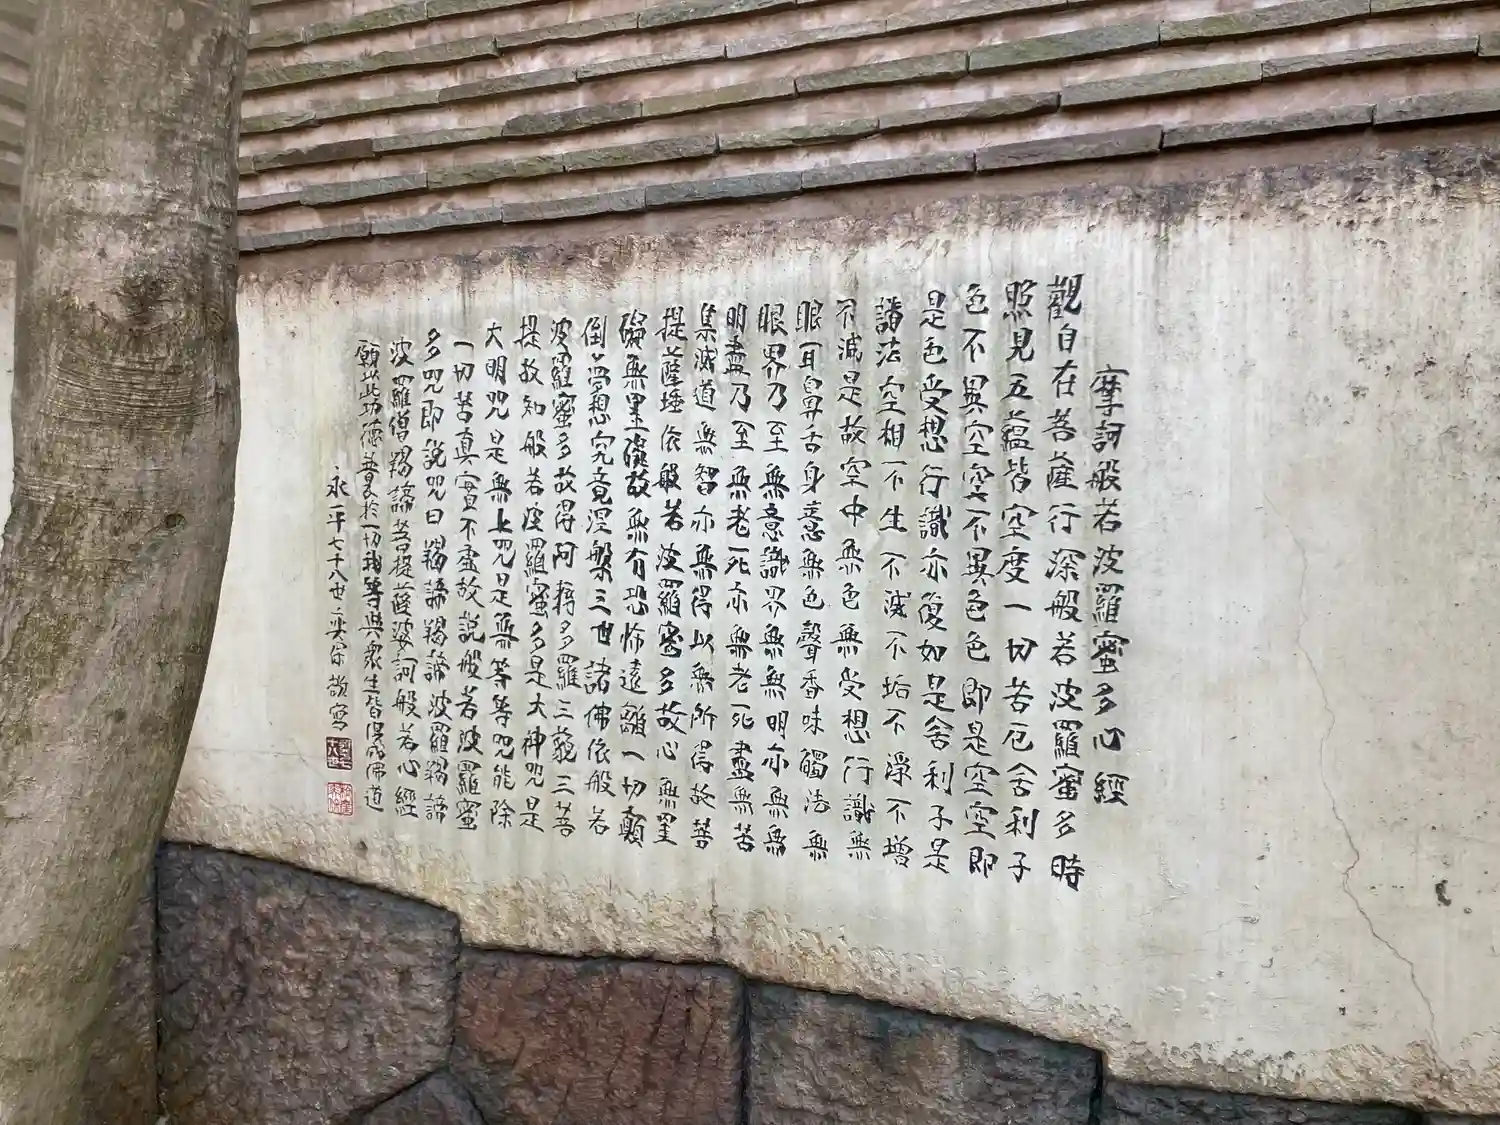 摩訶般若波羅蜜多心經
觀自在菩薩行深般若波羅蜜多時
照見五蘊皆空度一切苦厄舍利子
色不異空空不異色色即是空空即
是色受想行識亦復如是舍利子是
諸法空相不生不滅不垢不淨不增
不減是故空中無色無受想行識無
眼耳鼻舌身意無色聲香味觸法無
眼界乃至無意識界無無明亦無無
明盡乃至無老死亦無老死盡無苦
集滅道無智亦無得以無所得故菩
提薩埵依般若波羅蜜多故心無罣
礙無罣礙故無有恐怖遠離一切顛
倒夢想究竟涅槃三世諸佛依般若
波羅蜜多故得阿耨多羅三藐三菩
提故知般若波羅蜜多是大神咒是
大明咒是無上咒是無等等咒能除
一切苦真實不虛故說般若波羅蜜
多咒即說咒曰羯諦羯諦波羅羯諦
波羅僧羯諦菩提薩婆訶般若心經
願此功德普及於一切我等與眾生皆俱成佛道
永平七十八世奕保敬寫